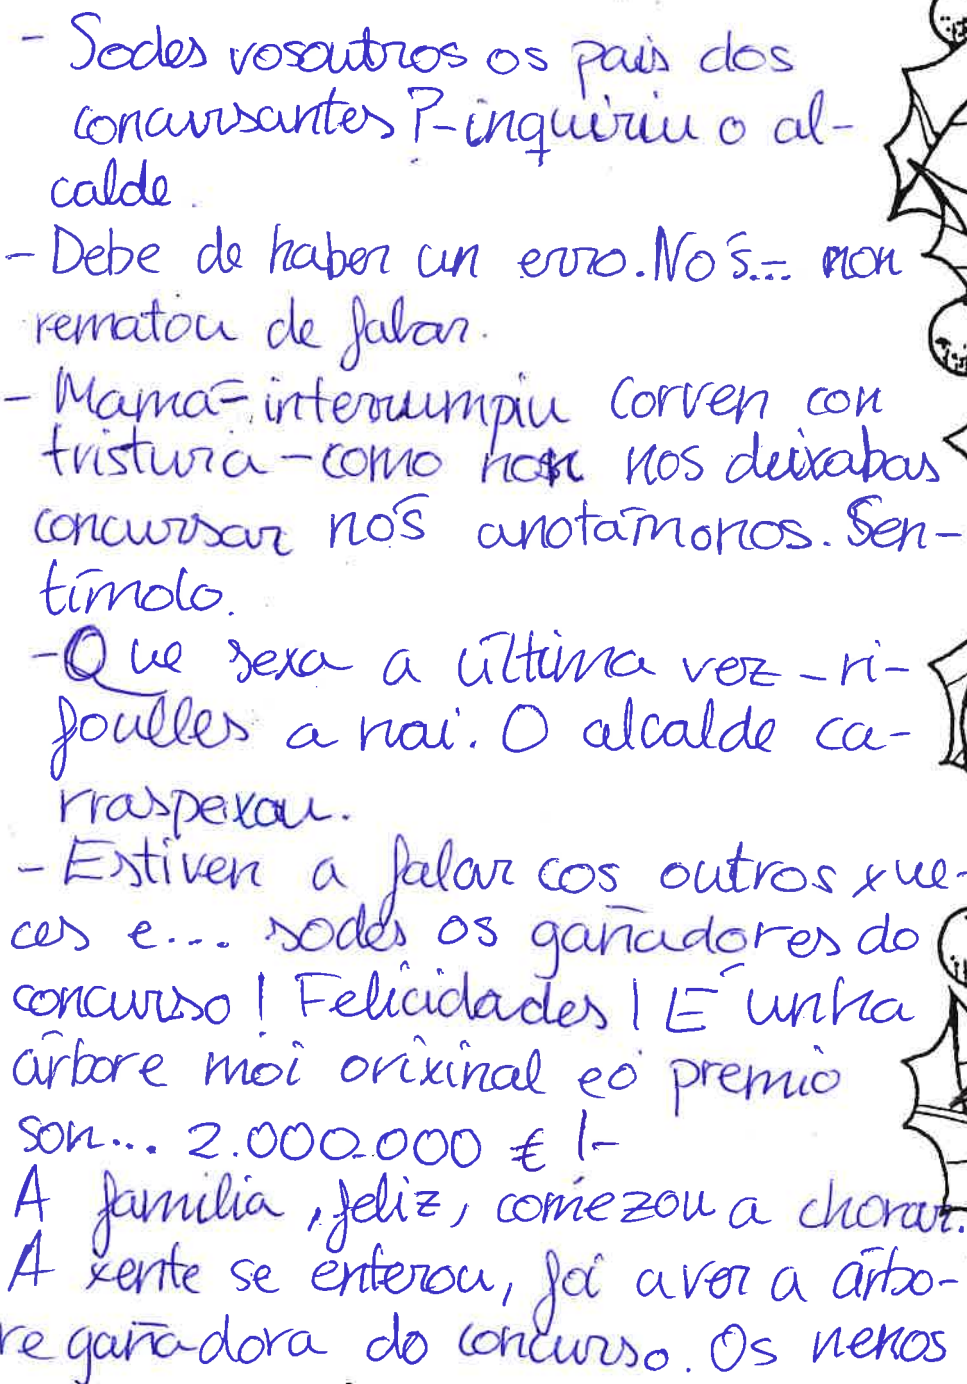 - Sodes vosoutros os pais dos
concursantes?-inquiriu o al-
calde.
- Debe de haber un erro. Nós... non
rematou de falar.
- Mamá-interrumpiu Corven con
tristura - como non nos deixabas
concursar nós anotámonos. Sen-
tímolo.
- Que sexa a última vez - ri-
foulles a nai. O alcalde ca-
rraspexou.
- Estiven a falar cos outros xue-
ces e... sodes os gañadores do
concurso! Felicidades! É unha
árbore moi orixinal e o premio
son... 2.000.000 € !-
A familia, feliz, comezou a chorar.
A xente se enterou, foi a ver a árbo-
re gañadora do concurso. Os nenos